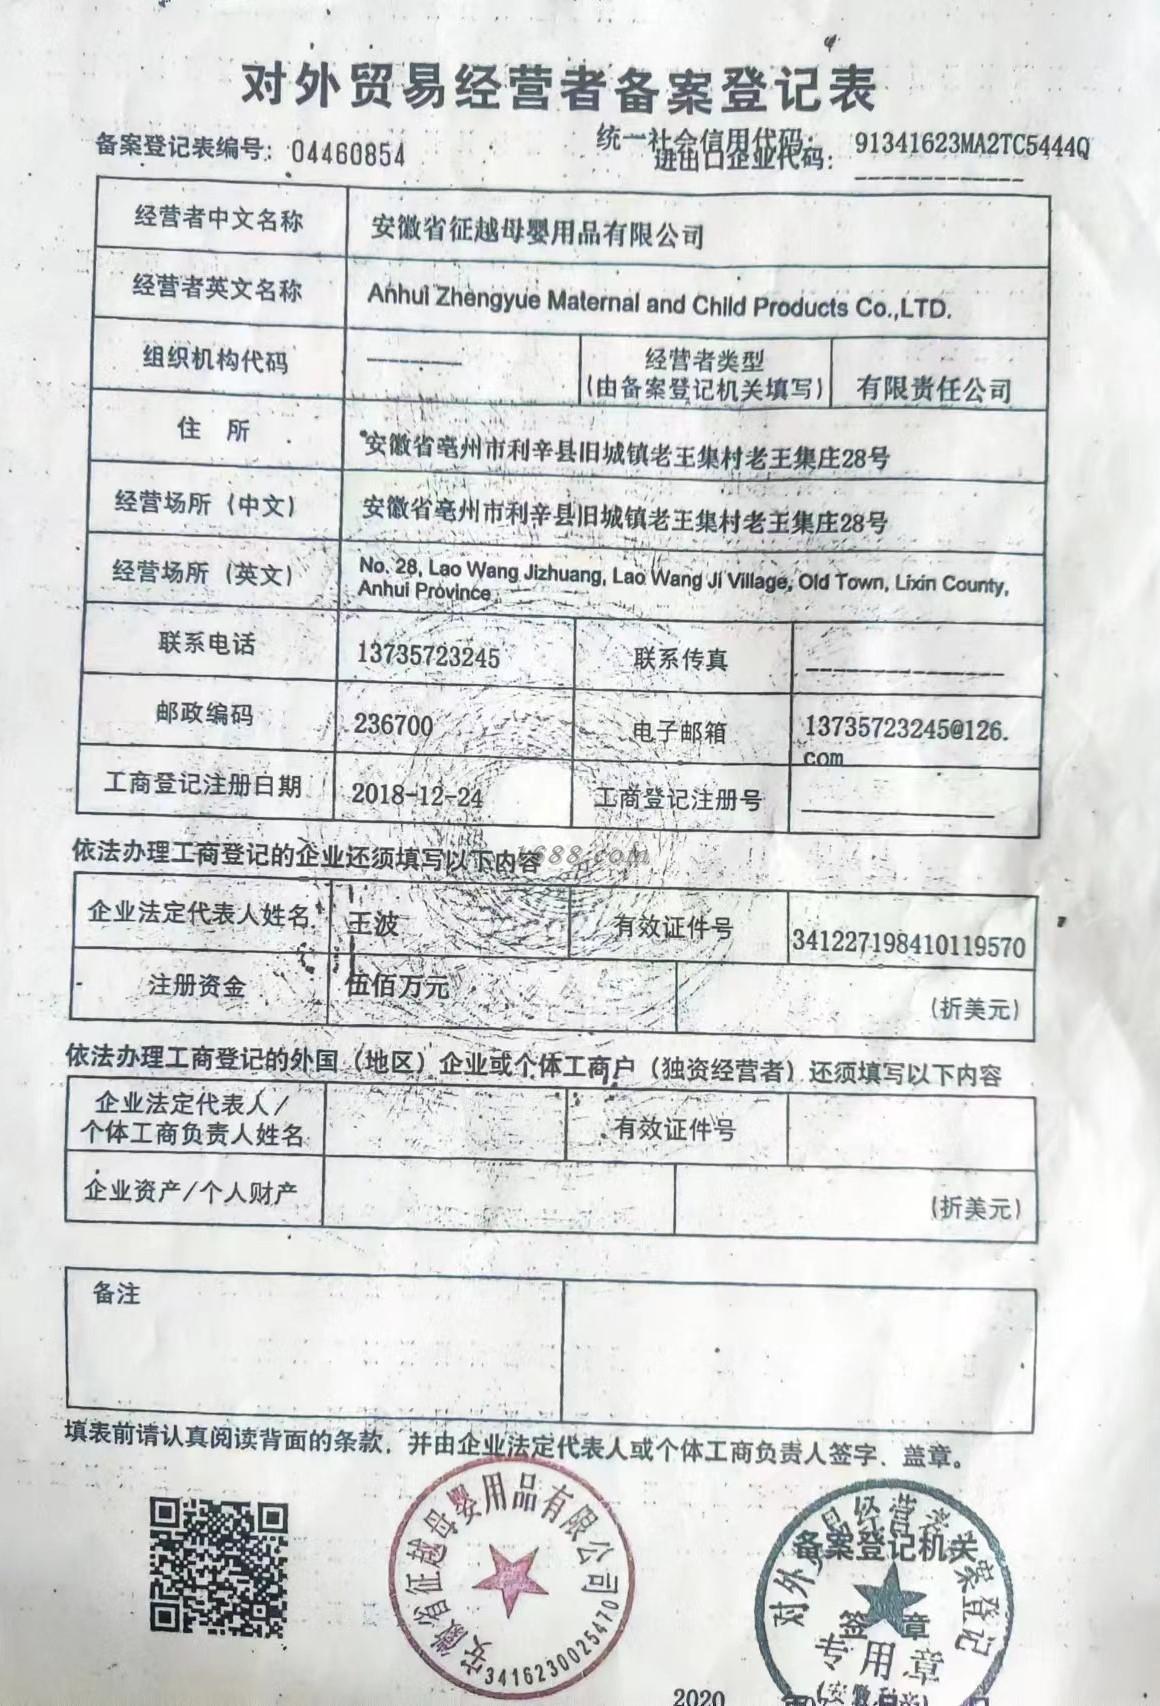 对外贸易经营者备案登记表
备案登记表编号: 04460854
统一社会信用代码: 91341623MA2TC5444Q
进出口企业代码: -------------
经营者中文名称 安徽省征越母婴用品有限公司
经营者英文名称 Anhui Zhengyue Maternal and Child Products Co.,LTD.
组织机构代码 --------- 经营者类型 (由备案登记机关填写) 有限责任公司
住 所 安徽省亳州市利辛县旧城镇老王集村老王集庄28号
经营场所 (中文) 安徽省亳州市利辛县旧城镇老王集村老王集庄28号
经营场所 (英文) No. 28, Lao Wang Jizhuang, Lao Wang Ji Village, Old Town, Lixin County,
Anhui Province
联系电话 13735723245 联系传真 ----------------
邮政编码 236700 电子邮箱 13735723245@126.
com
工商登记注册日期 2018-12-24 工商登记注册号 ----------------
1688.com
依法办理工商登记的企业还须填写以下内容
企业法定代表人姓名 王波 有效证件号 341227198410119570
注册资金 伍佰万元 (折美元)
依法办理工商登记的外国 (地区) 企业或个体工商户 (独资经营者) 还须填写以下内容
企业法定代表人/
个体工商负责人姓名 有效证件号
企业资产/个人财产 (折美元)
备注
填表前请认真阅读背面的条款, 并由企业法定代表人或个体工商负责人签字、盖章。
安徽省征越母婴用品有限公司
3416230025470
备案登记机关
签 章
专用章
2020